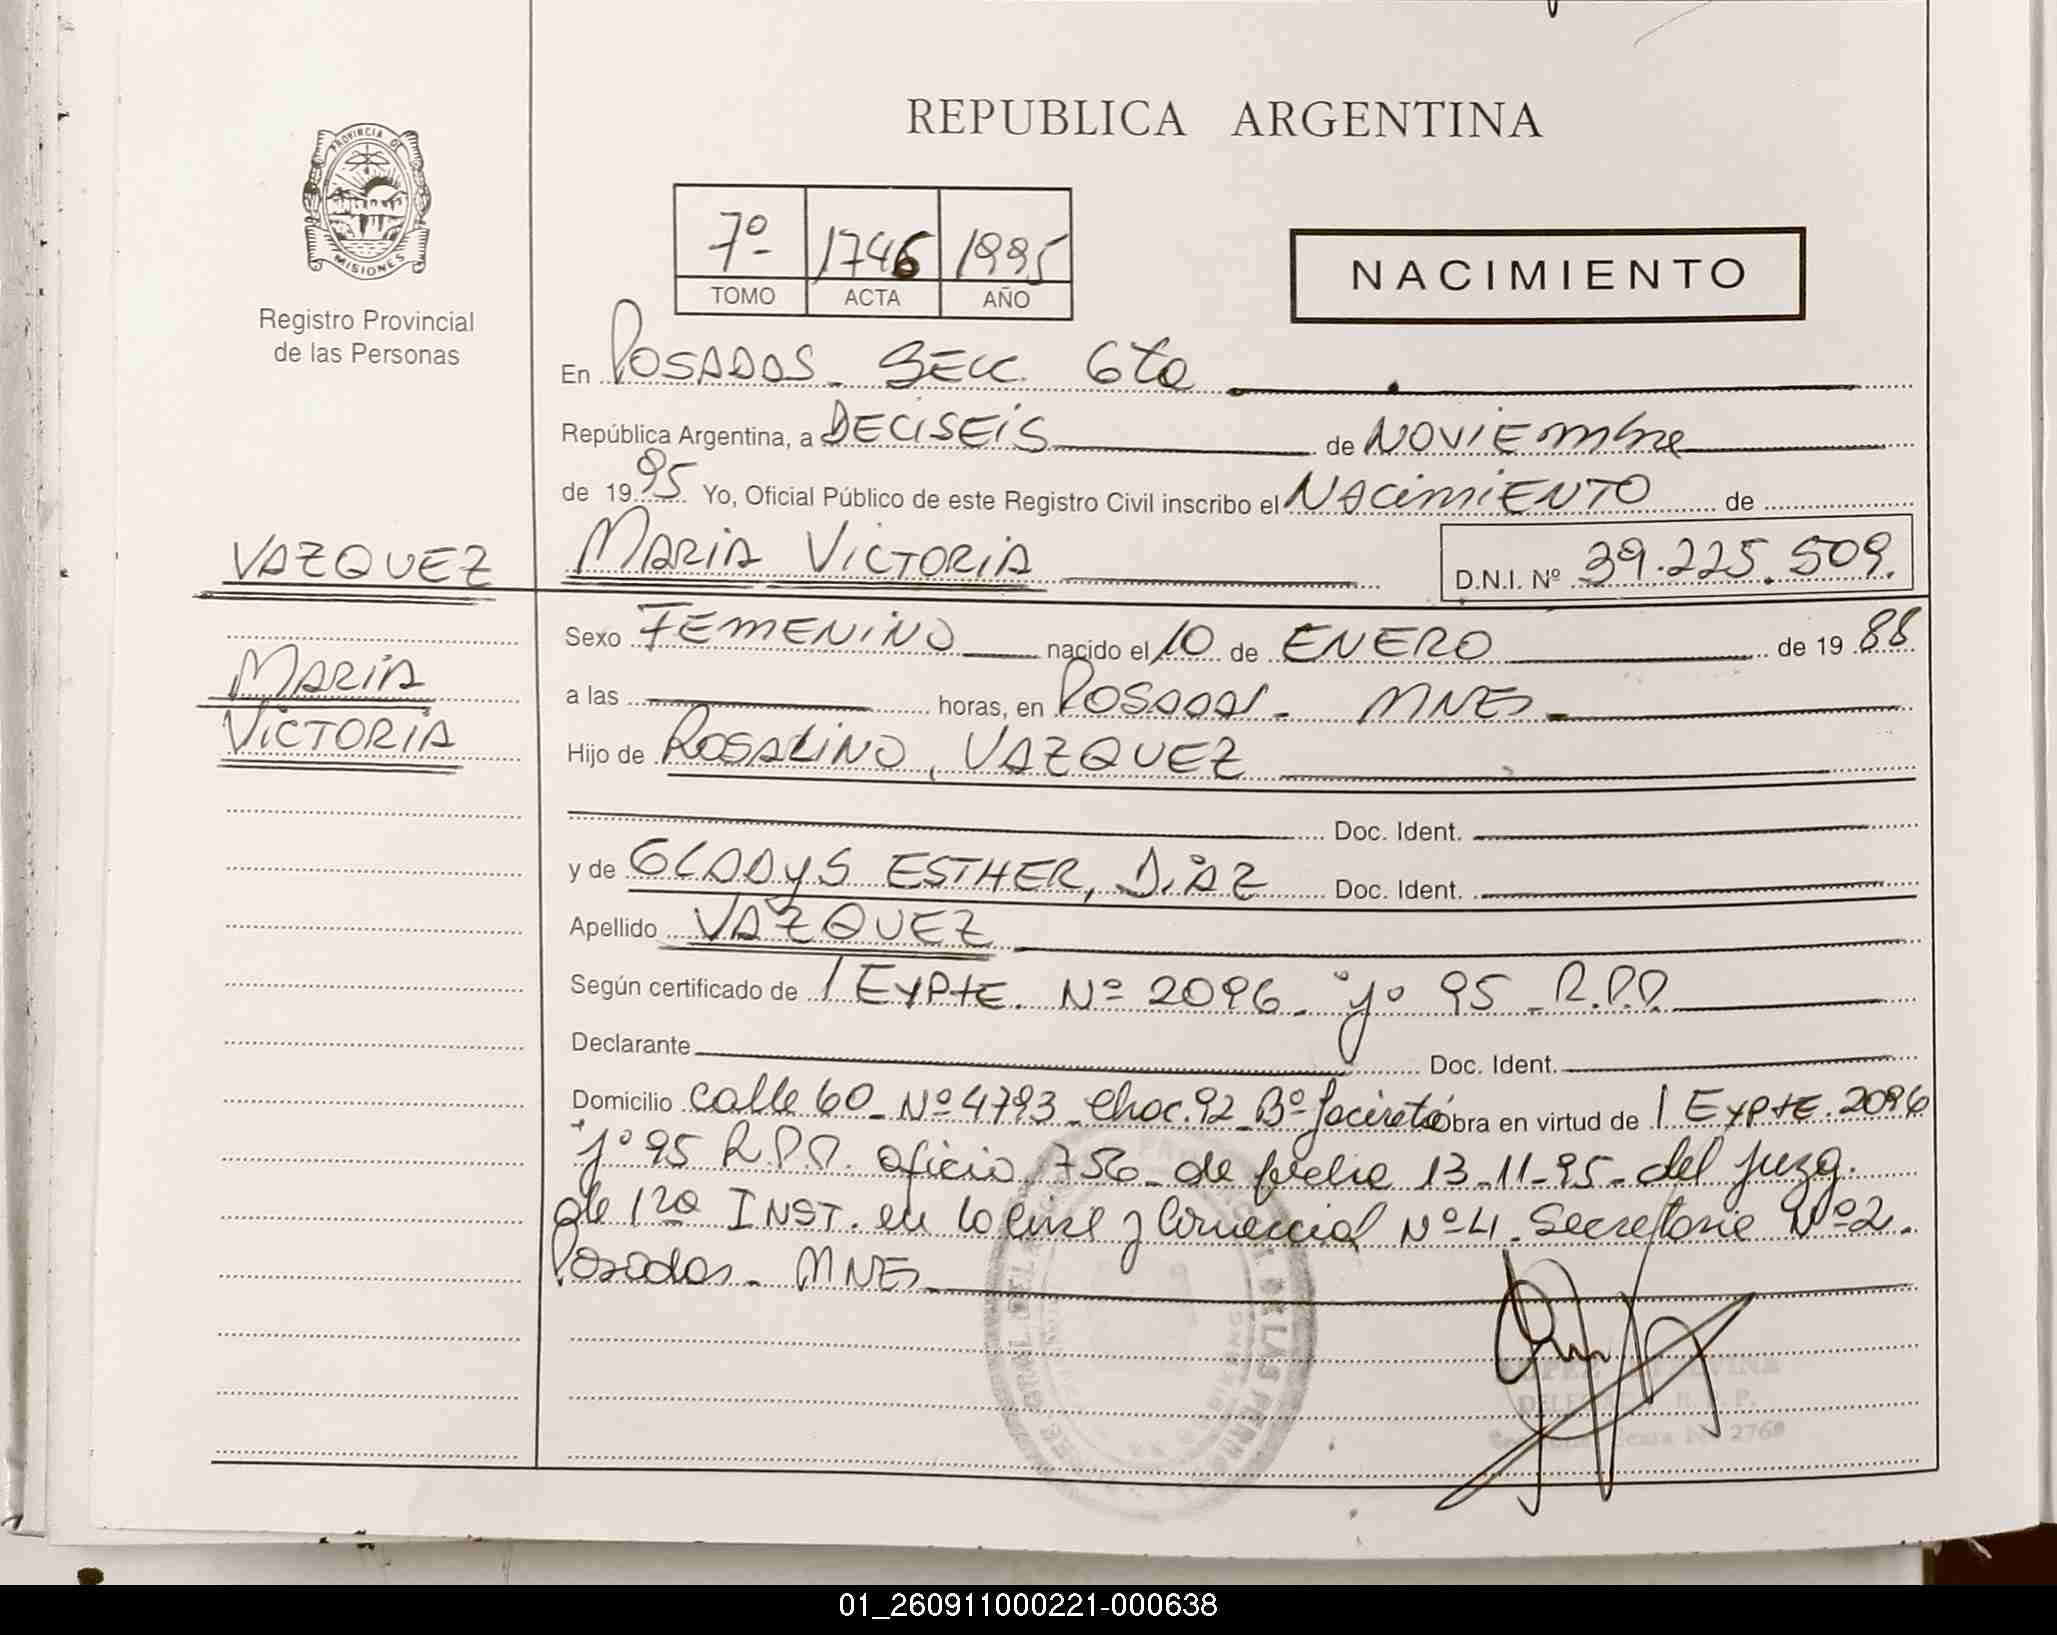 REPUBLICA ARGENTINA
PROVINCIA DE
MISIONES
Registro Provincial
de las Personas
7º 1746 1995
TOMO ACTA AÑO
NACIMIENTO
En POSADAS - SECC. 6ta
República Argentina, a DECISEIS de NOVIEmbre
de 1995 Yo, Oficial Público de este Registro Civil inscribo el NACIMIENTO de
VAZQUEZ
MARIA VICTORIA D.N.I. Nº 39.225.509.
Sexo FEMENINO nacido el 10 de ENERO de 19 88
MARIA
VICTORIA
a las horas, en POSADAS - MNES
Hijo de ROSALINO, VAZQUEZ
Doc. Ident.
y de GLADYS ESTHER, DiAZ Doc. Ident.
Apellido VAZQUEZ
Según certificado de / EXPTE. Nº 2096 - "J" 95 - R.P.P.
Declarante Doc. Ident.
Domicilio calle 60 - Nº 4793 - Choc. 92 - Bº Yacireta obra en virtud de / EXPTE. 2096
"J" 95 R.P.P. oficio 756 - de fecha 13-11-95 - del Juzg.
de 1ra INST. en lo civil y Comercial Nº 4. Secretaria Nº 2.
Posadas - MNES
DE LAS PERSONAS
2760
01_260911000221-000638